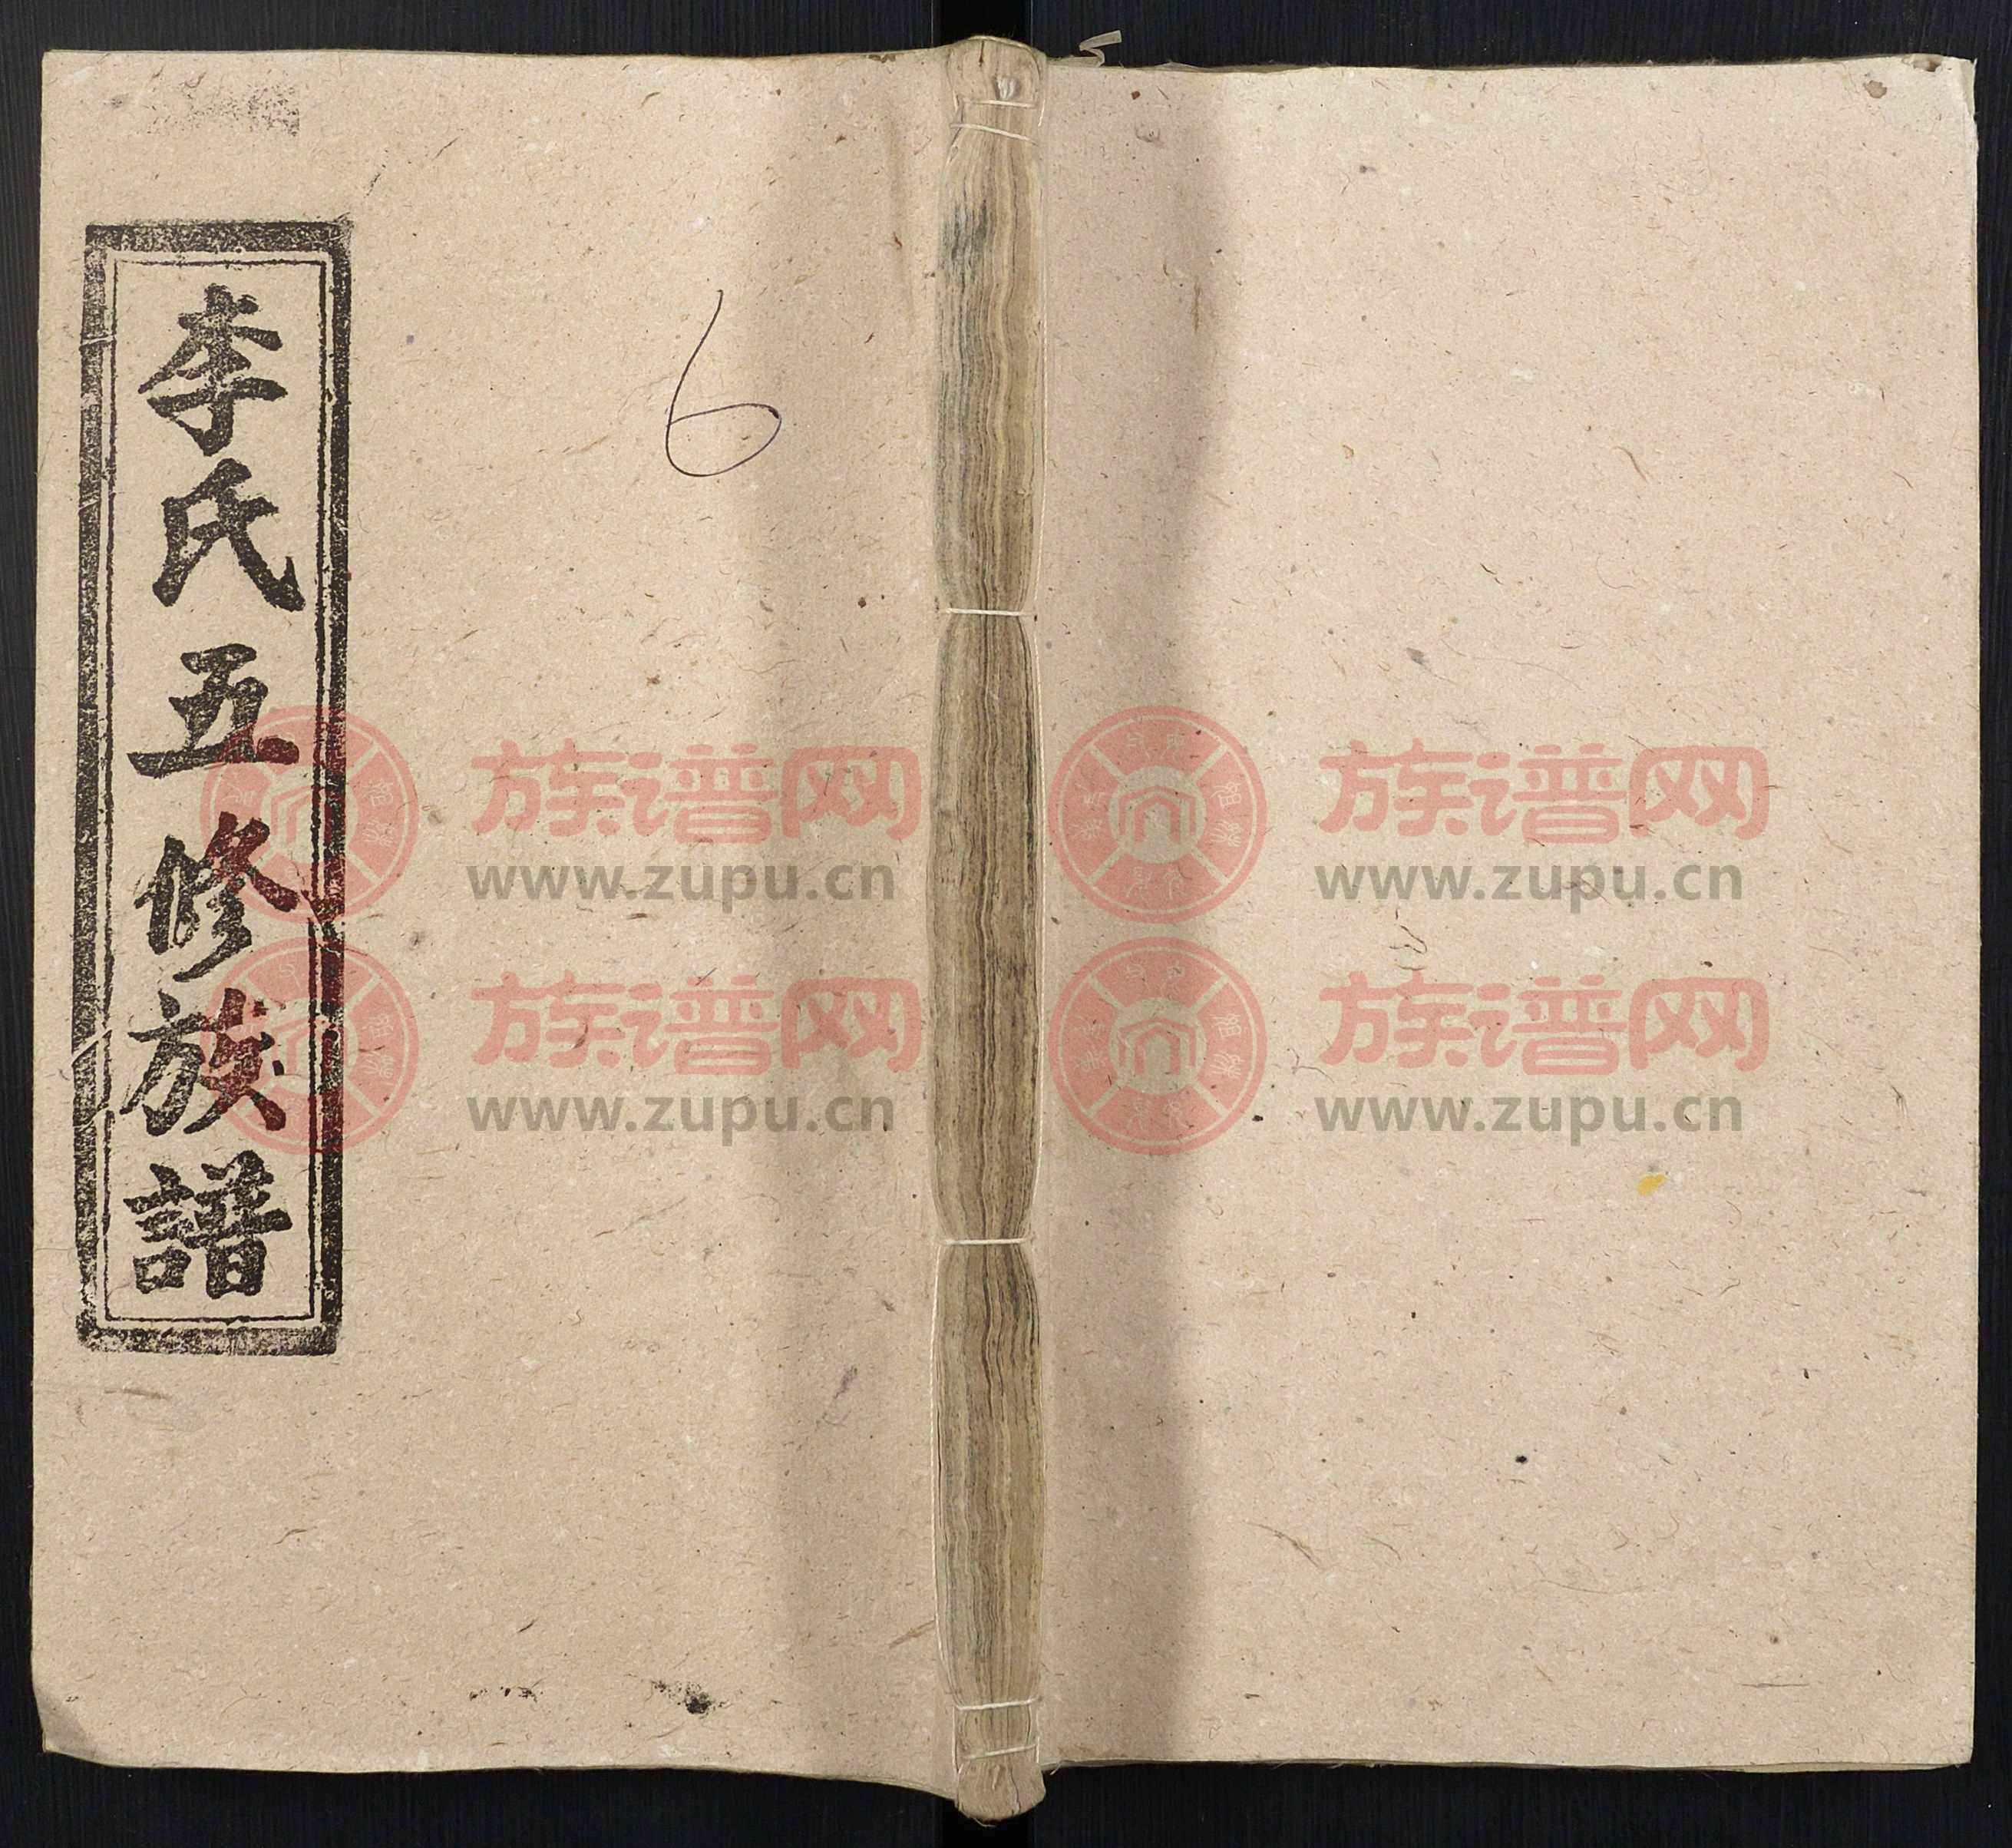 李氏五修族譜
6
族谱网
www.zupu.cn
族谱网
www.zupu.cn
族谱网
www.zupu.cn
族谱网
www.zupu.cn